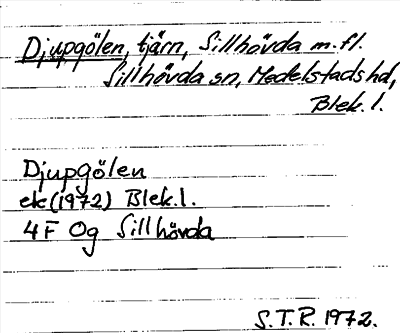 Djupgölen, tjärn, Sillhövda m.fl.
Sillhövda sn, Medelstads hd,
Blek. l.
Djupgölen
ek (1972) Blek. l.
4F Og Sillhövda
S.T.R. 1972.